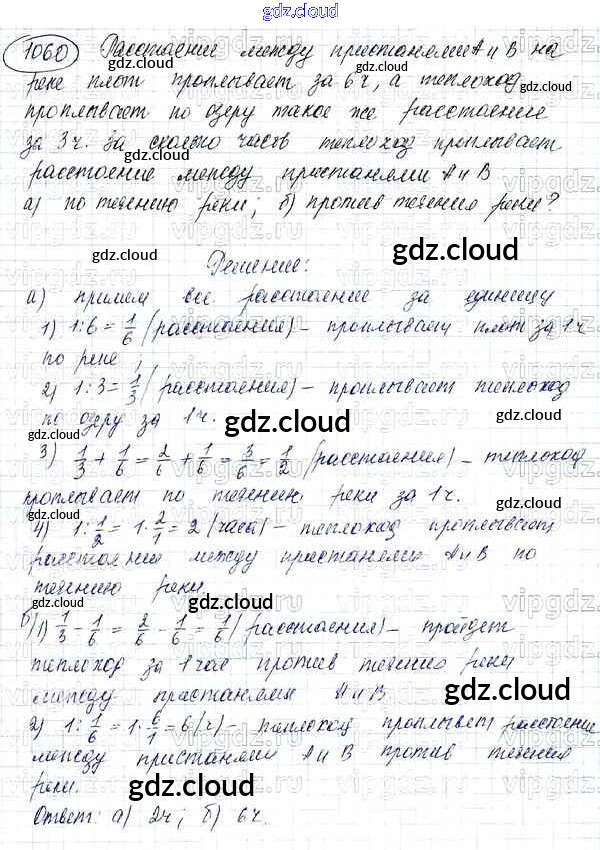 gdz.cloud
1060 Расстояние между пристанями А и В на
реке плот проплывает за 6 ч, а теплоход
проплывает по озеру такое же расстояние
за 3 ч. За сколько часов теплоход проплывает
расстояние между пристанями А и В
а) по течению реки; б) против течения реки?
Решение:
а) примем все расстояние за единицу
1) 1:6 = 1/6 (расстояния) – проплывает плот за 1 ч
по реке;
2) 1:3 = 1/3 (расстояния) – проплывает теплоход
по озеру за 1 ч.
3) 1/3 + 1/6 = 2/6 + 1/6 = 3/6 = 1/2 (расстояния) – теплоход
проплывает по течению реки за 1 ч.
4) 1:1/2 = 1·2/1 = 2 (часа) – теплоход проплывает
расстояние между пристанями А и В по
течению реки.
б) 1) 1/3 - 1/6 = 2/6 - 1/6 = 1/6 (расстояния) – пройдет
теплоход за 1 час против течения реки
между пристанями А и В.
2) 1:1/6 = 1·6/1 = 6 (ч) – теплоход проплывет расстояние
между пристанями А и В против течения
реки.
Ответ: а) 2 ч; б) 6 ч.